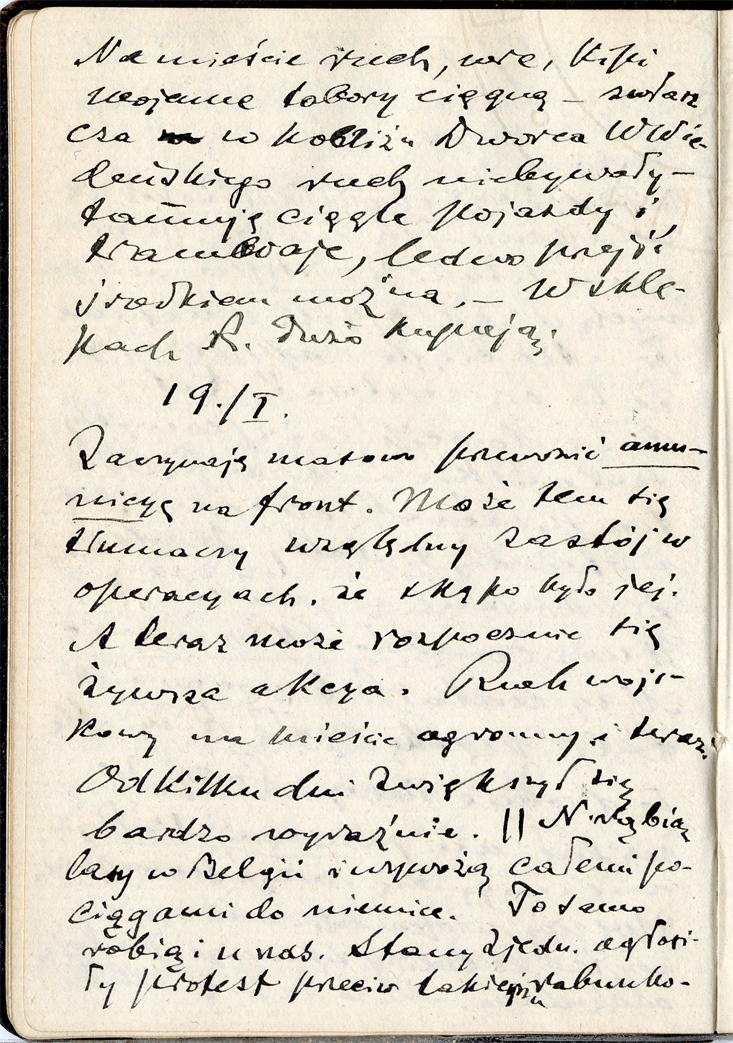 Na mieście ruch, wre, kipi
wojenne tabory ciągną – zwłasz
cza w pobliżu Dworca Wie-
deńskiego ruch niebywały –
tamują ciągle pojazdy i
tramwaje, ledwo przejść
środkiem można. – W skle-
pach R. dużo kupują.
19./I.
Zaczynają masowo przewozić amu-
nicyę na front. Może tem się
tłumaczy względny zastój w
operacyach, że skąpo było jej.
A teraz może rozpocznie się
żywsza akcya. Ruch woj-
kowy na mieście ogromny i teraz.
Od kilku dni zwiększył się
bardzo wyraźnie. || N. rąbią
lasy w Belgii i wywożą całemi po-
ciągami do niemiec. To samo
robią i u nas. Stany Zjedn. ogłosi-
ły protest przeciw takiemu rabunko-